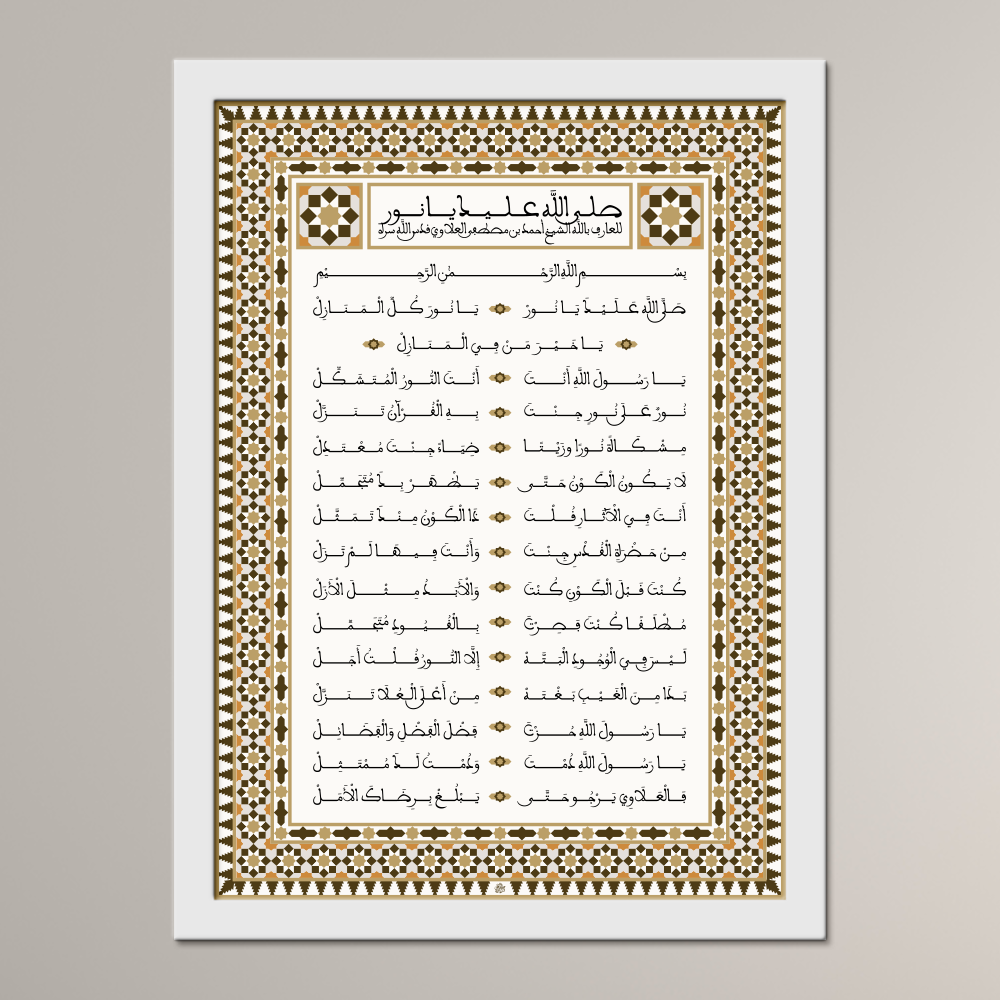 صلى الله عليك يا نور
للعارف بالله الشيخ أحمد بن مصطفى العلاوي قدس الله سره
بِسْمِ اللَّهِ الرَّحْمَٰنِ الرَّحِيمِ
صَلَّى اللَّهُ عَلَيْكَ يَا نُورْ يَا نُورَ كُلِّ الْمَنَازِلْ
يَا خَيْرَ مَنْ فِي الْمَنَازِلْ
يَا رَسُولَ اللَّهِ أَنْتَ أَنْتَ النُّورُ الْمُتَشَكِّلْ
نُورٌ عَلَى نُورٍ جِئْتَ بِهِ الْقُرْآنُ تَنَزَّلْ
مِشْكَاةً نُورًا وَزَيْتَا ضِيَاءً جِئْتَ مُعْتَدِلْ
لَا يَكُونُ الْكَوْنُ حَتَّى يَظْهَرْ بِكَ مُتَجَمِّلْ
أَنْتَ فِي الْآثَارِ قُلْتَ ذَا الْكَوْنُ مِنْكَ تَمَثَّلْ
مِنْ حَضْرَةِ الْقُدْسِ جِئْتَ وَأَنْتَ فِيهَا لَمْ تَزَلْ
كُنْتَ قَبْلَ الْكَوْنِ كُنْتَ وَالْأَبَدُ مِثْلَ الْأَزَلْ
مُطْلَقًا كُنْتَ فَصِرْتَ بِالْقُيُودِ مُتَجَمِّلْ
لَيْسَ فِي الْوُجُودِ الْبَتَّةَ إِلَّا النُّورُ قُلْتُ أَجَلْ
بَدَا مِنَ الْغَيْبِ بَغْتَةً مِنْ أَعْلَى الْعُلَا تَنَزَّلْ
يَا رَسُولَ اللَّهِ حُزْتَ فَضْلَ الْفَضْلِ وَالْفَضَائِلْ
يَا رَسُولَ اللَّهِ دُمْتَ وَدُمْتُ لَكَ مُمْتَثِلْ
فَالْعَلَاوِي يَرْجُو حَتَّى يَبْلُغْ بِرِضَاكَ الْأَمَلْ